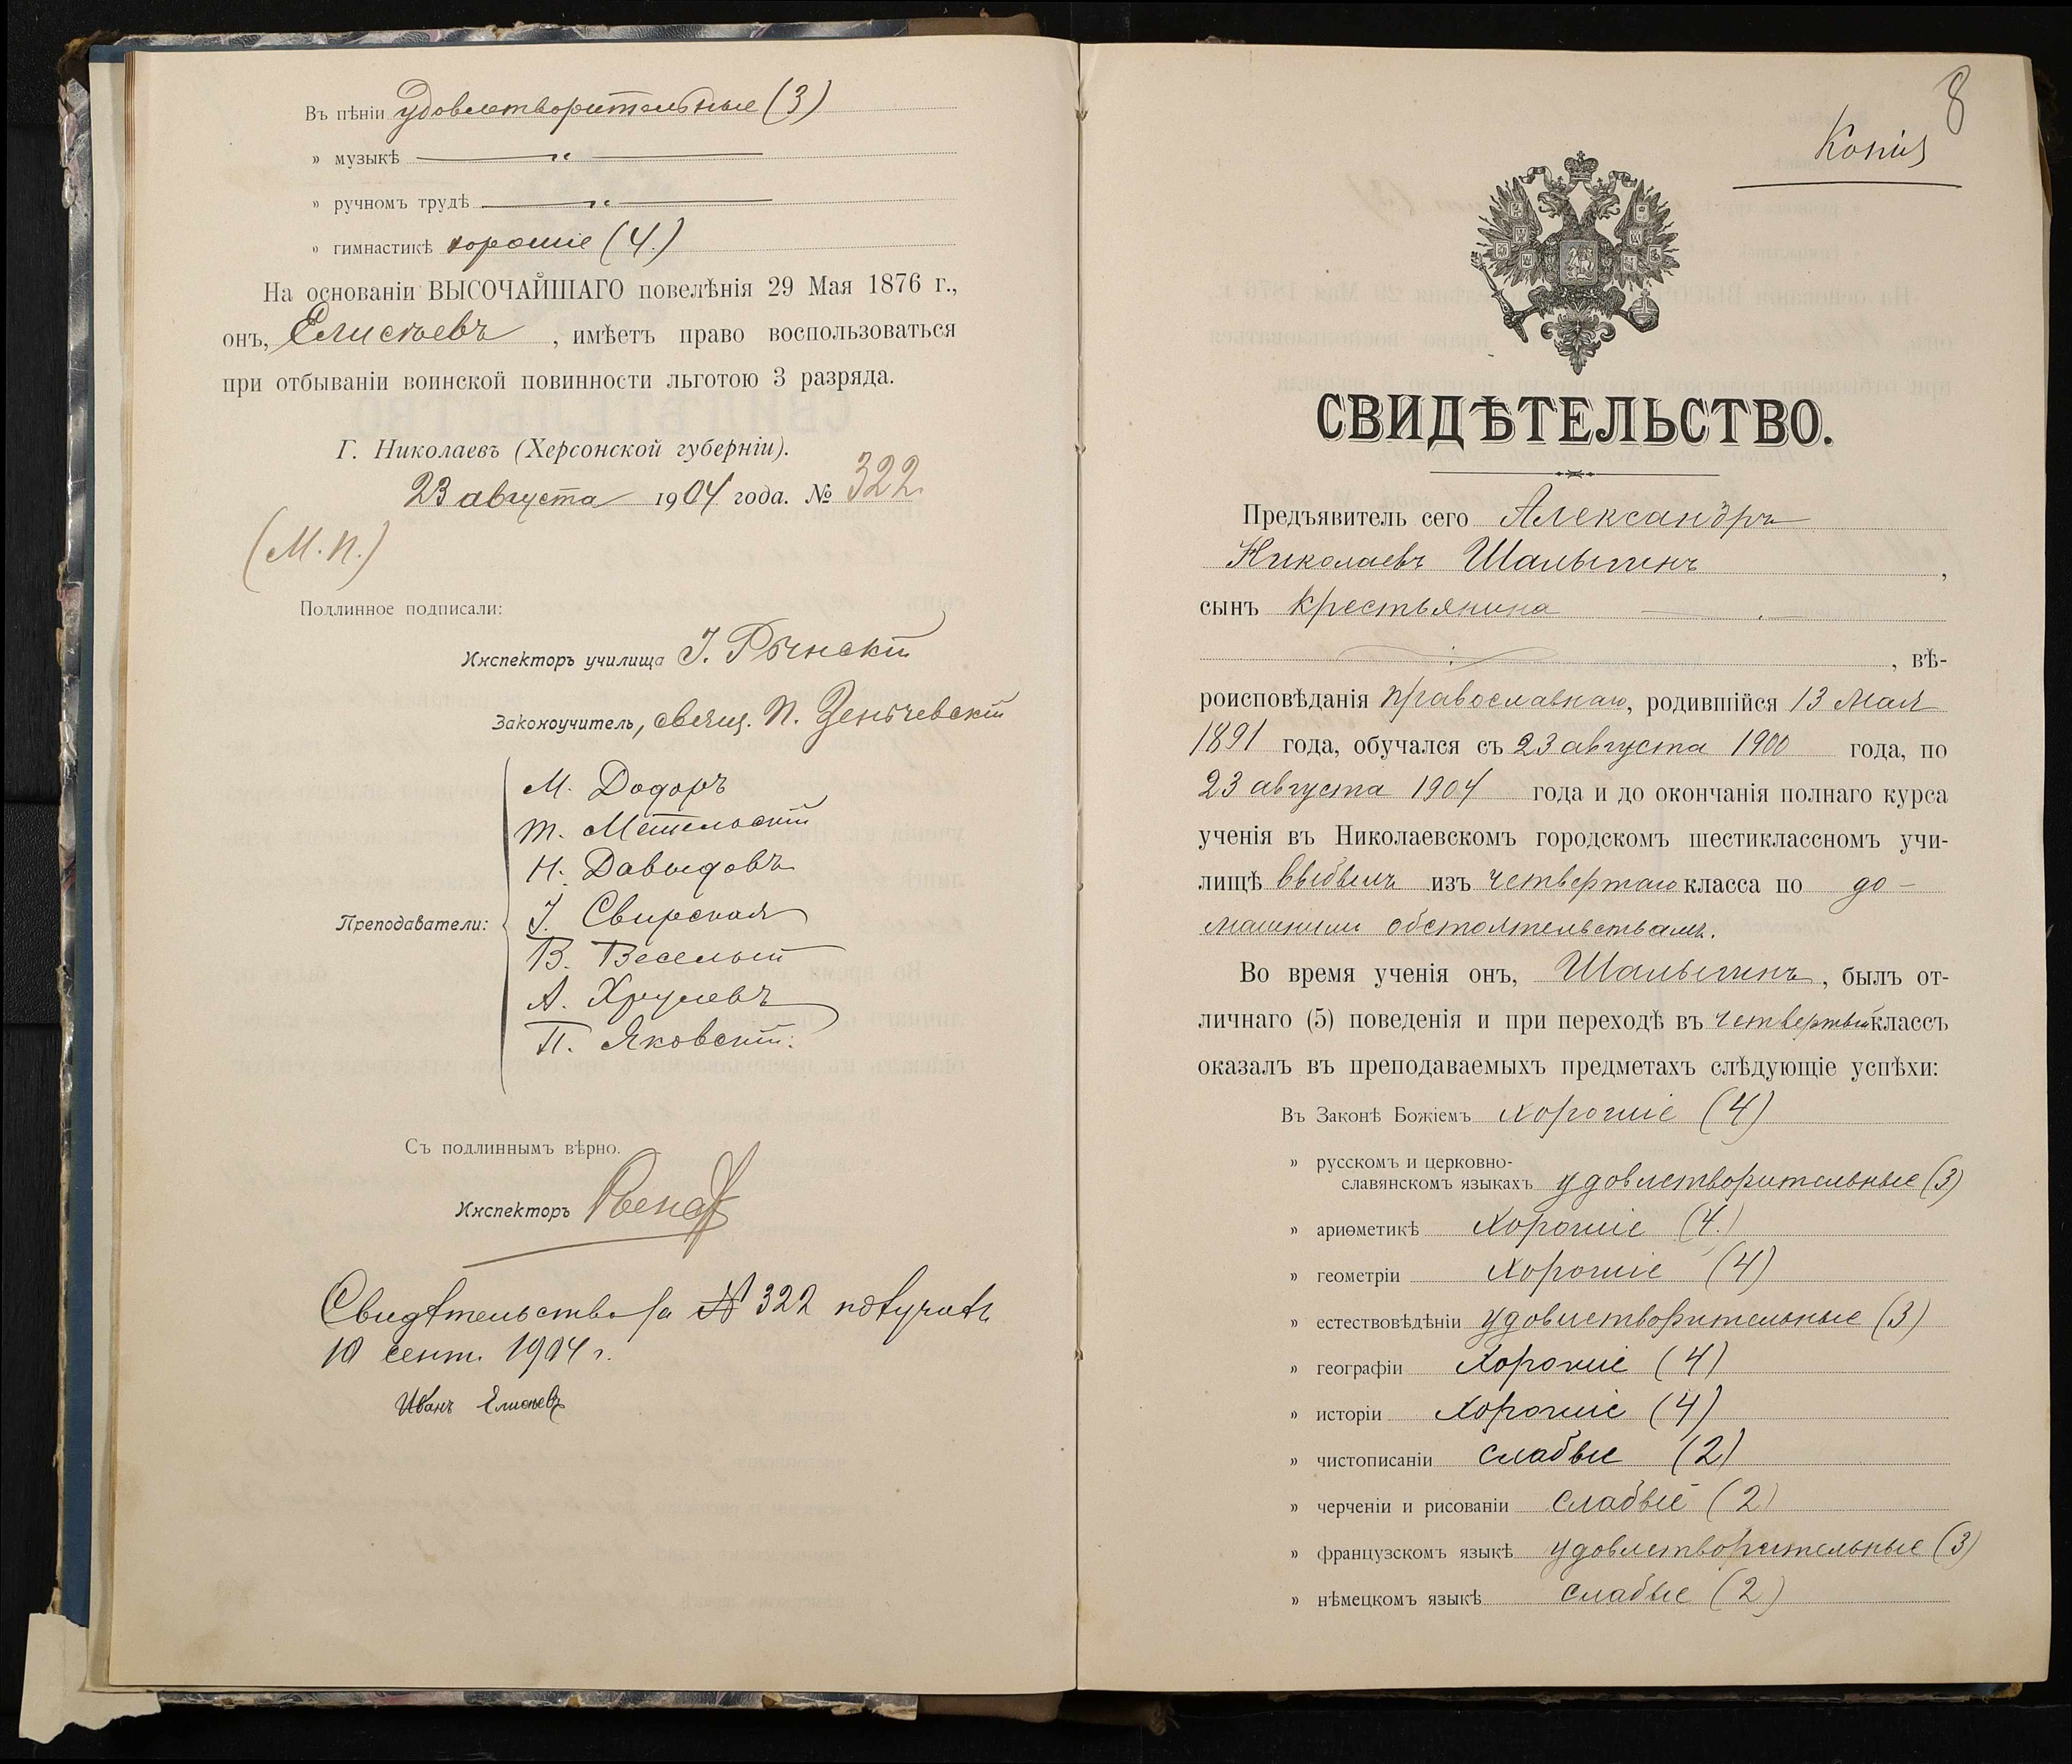 Въ пѣніи удовлетворительные (3)
» музыкѣ — „ —
» ручномъ трудѣ — „ —
» гимнастикѣ хорошіе (4.)
На основаніи ВЫСОЧАЙШАГО повелѣнія 29 Мая 1876 г.,
онъ, Елисѣевъ, имѣетъ право воспользоваться
при отбываніи воинской повинности льготою 3 разряда.
Г. Николаевъ (Херсонской губерніи).
23 августа 1904 года. № 322
(М. П.)
Подлинное подписали:
Инспекторъ училища
Законоучитель, свящ. П.
М. Додоръ
Т. Метельскій
Н. Давыдовъ
Преподаватели:
І. Свирская
В. Веселый
А. Хрулевъ
П. Яковскій.
Съ подлиннымъ вѣрно.
Инспекторъ
Свидѣтельство за № 322 получилъ
10 сент. 1904 г.
Иванъ Елисѣевъ
8
Копія
СВИДѢТЕЛЬСТВО.
Предъявитель сего Александръ
Николаевъ Шалыгинъ,
сынъ крестьянина
, вѣ-
роисповѣданія православнаго, родившійся 13 мая
1891 года, обучался съ 23 августа 1900 года, по
23 августа 1904 года и до окончанія полнаго курса
ученія въ Николаевскомъ городскомъ шестиклассномъ учи-
лищѣ выбылъ изъ четвертаго класса по до-
машнимъ обстоятельствамъ.
Во время ученія онъ, Шалыгинъ, былъ от-
личнаго (5) поведенія и при переходѣ въ четвертый классъ
оказалъ въ преподаваемыхъ предметахъ слѣдующіе успѣхи:
Въ Законѣ Божіемъ хорошіе (4)
» русскомъ и церковно-
славянскомъ языкахъ удовлетворительные (3)
» ариѳметикѣ хорошіе (4.)
» геометріи хорошіе (4)
» естествовѣдѣніи удовлетворительные (3)
» географіи хорошіе (4)
» исторіи хорошіе (4)
» чистописаніи слабые (2)
» черченіи и рисованіи слабые (2)
» французскомъ языкѣ удовлетворительные (3)
» нѣмецкомъ языкѣ слабые (2)